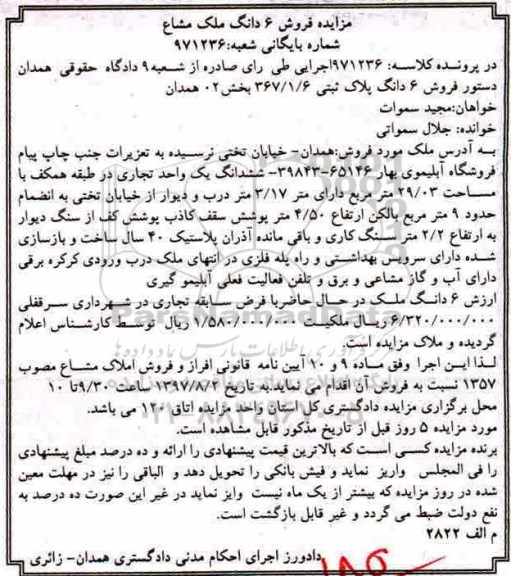 مزایده فروش ۶ دانگ ملک مشاع
شماره بایگانی شعبه:۹۷۱۲۳۶
در پرونده کلاسه: ۹۷۱۲۳۶اجرایی طی رای صادره از شعبه۹ دادگاه حقوقی همدان
دستور فروش ۶ دانگ پلاک ثبتی ۳۶۷/۱/۶ بخش۰۲ همدان
خواهان:مجید سموات
خوانده: جلال سمواتی
به آدرس ملک مورد فروش:همدان- خیابان تختی نرسیده به تعزیرات جنب چاپ پیام
فروشگاه آبلیموی بهار ۶۵۱۴۶-۳۹۸۴۳- ششدانگ یک واحد تجاری در طبقه همکف با
مساحت ۲۹/۰۳ متر مربع دارای متر ۳/۱۷ متر درب و دیوار از خیابان تختی به انضمام
حدود ۹ متر مربع بالکن ارتفاع ۴/۵۰ متر پوشش سقف کاذب پوشش کف از سنگ دیوار
به ارتفاع ۲/۲ متر سنگ کاری و باقی مانده آذران پلاستیک ۴۰ سال ساخت و بازسازی
شده دارای سرویس بهداشتی و راه پله فلزی در انتهای ملک درب ورودی کرکره برقی
دارای آب و گاز مشاعی و برق و تلفن فعالیت فعلی آبلیمو گیری
ارزش ۶ دانگ ملک در حال حاضربا فرض سابقه تجاری در شهرداری سرقفلی
۶/۳۲۰/۰۰۰/۰۰۰ ریال ملکیت ۱/۵۸۰/۰۰۰/۰۰۰ ریال توسط کارشناس اعلام
گردیده و ملاک مزایده است.
لذا این اجرا وفق ماده ۹ و ۱۰ آیین نامه قانونی افراز و فروش املاک مشاع مصوب
۱۳۵۷ نسبت به فروش آن اقدام می نماید.به تاریخ ۱۳۹۷/۸/۲ ساعت ۹/۳۰تا ۱۰
محل برگزاری مزایده دادگستری کل استان واحد مزایده اتاق ۱۲۰ می باشد.
مورد مزایده ۵ روز قبل از تاریخ مذکور قابل مشاهده است.
برنده مزایده کسی است که بالاترین قیمت پیشنهادی را ارائه و ده درصد مبلغ پیشنهادی
را فی المجلس واریز نماید و فیش بانکی را تحویل دهد و الباقی را نیز در مهلت معین
شده در روز مزایده که بیشتر از یک ماه نیست وایز نماید در غیر این صورت ده درصد به
نفع دولت ضبط می گردد و غیر قابل بازگشت است.
م الف ۲۸۲۲
دادورز اجرای احکام مدنی دادگستری همدان- زائری